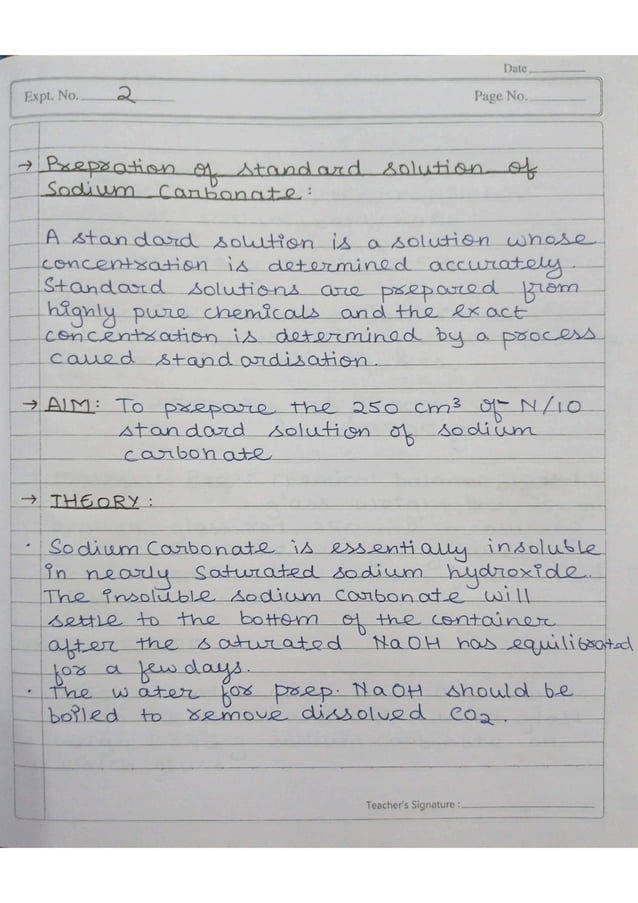 Date
Expt. No. 2
Page No.
→ Prepration of standard solution of
Sodium Carbonate :
A standard solution is a solution whose
concentration is determined accurately.
Standard solutions are prepared from
highly pure chemicals and the exact
concentration is determined by a process
called standardisation.
→ AIM: To prepare the 250 cm³ of N/10
standard solution of sodium
carbonate
→ THEORY :
· Sodium Carbonate is essentially insoluble
in nearly saturated sodium hydroxide.
The insoluble sodium carbonate will
settle to the bottom of the container
after the saturated NaOH has equilibrated
for a few days.
· The water for prep. NaOH should be
boiled to remove dissolved CO2.
Teacher's Signature :